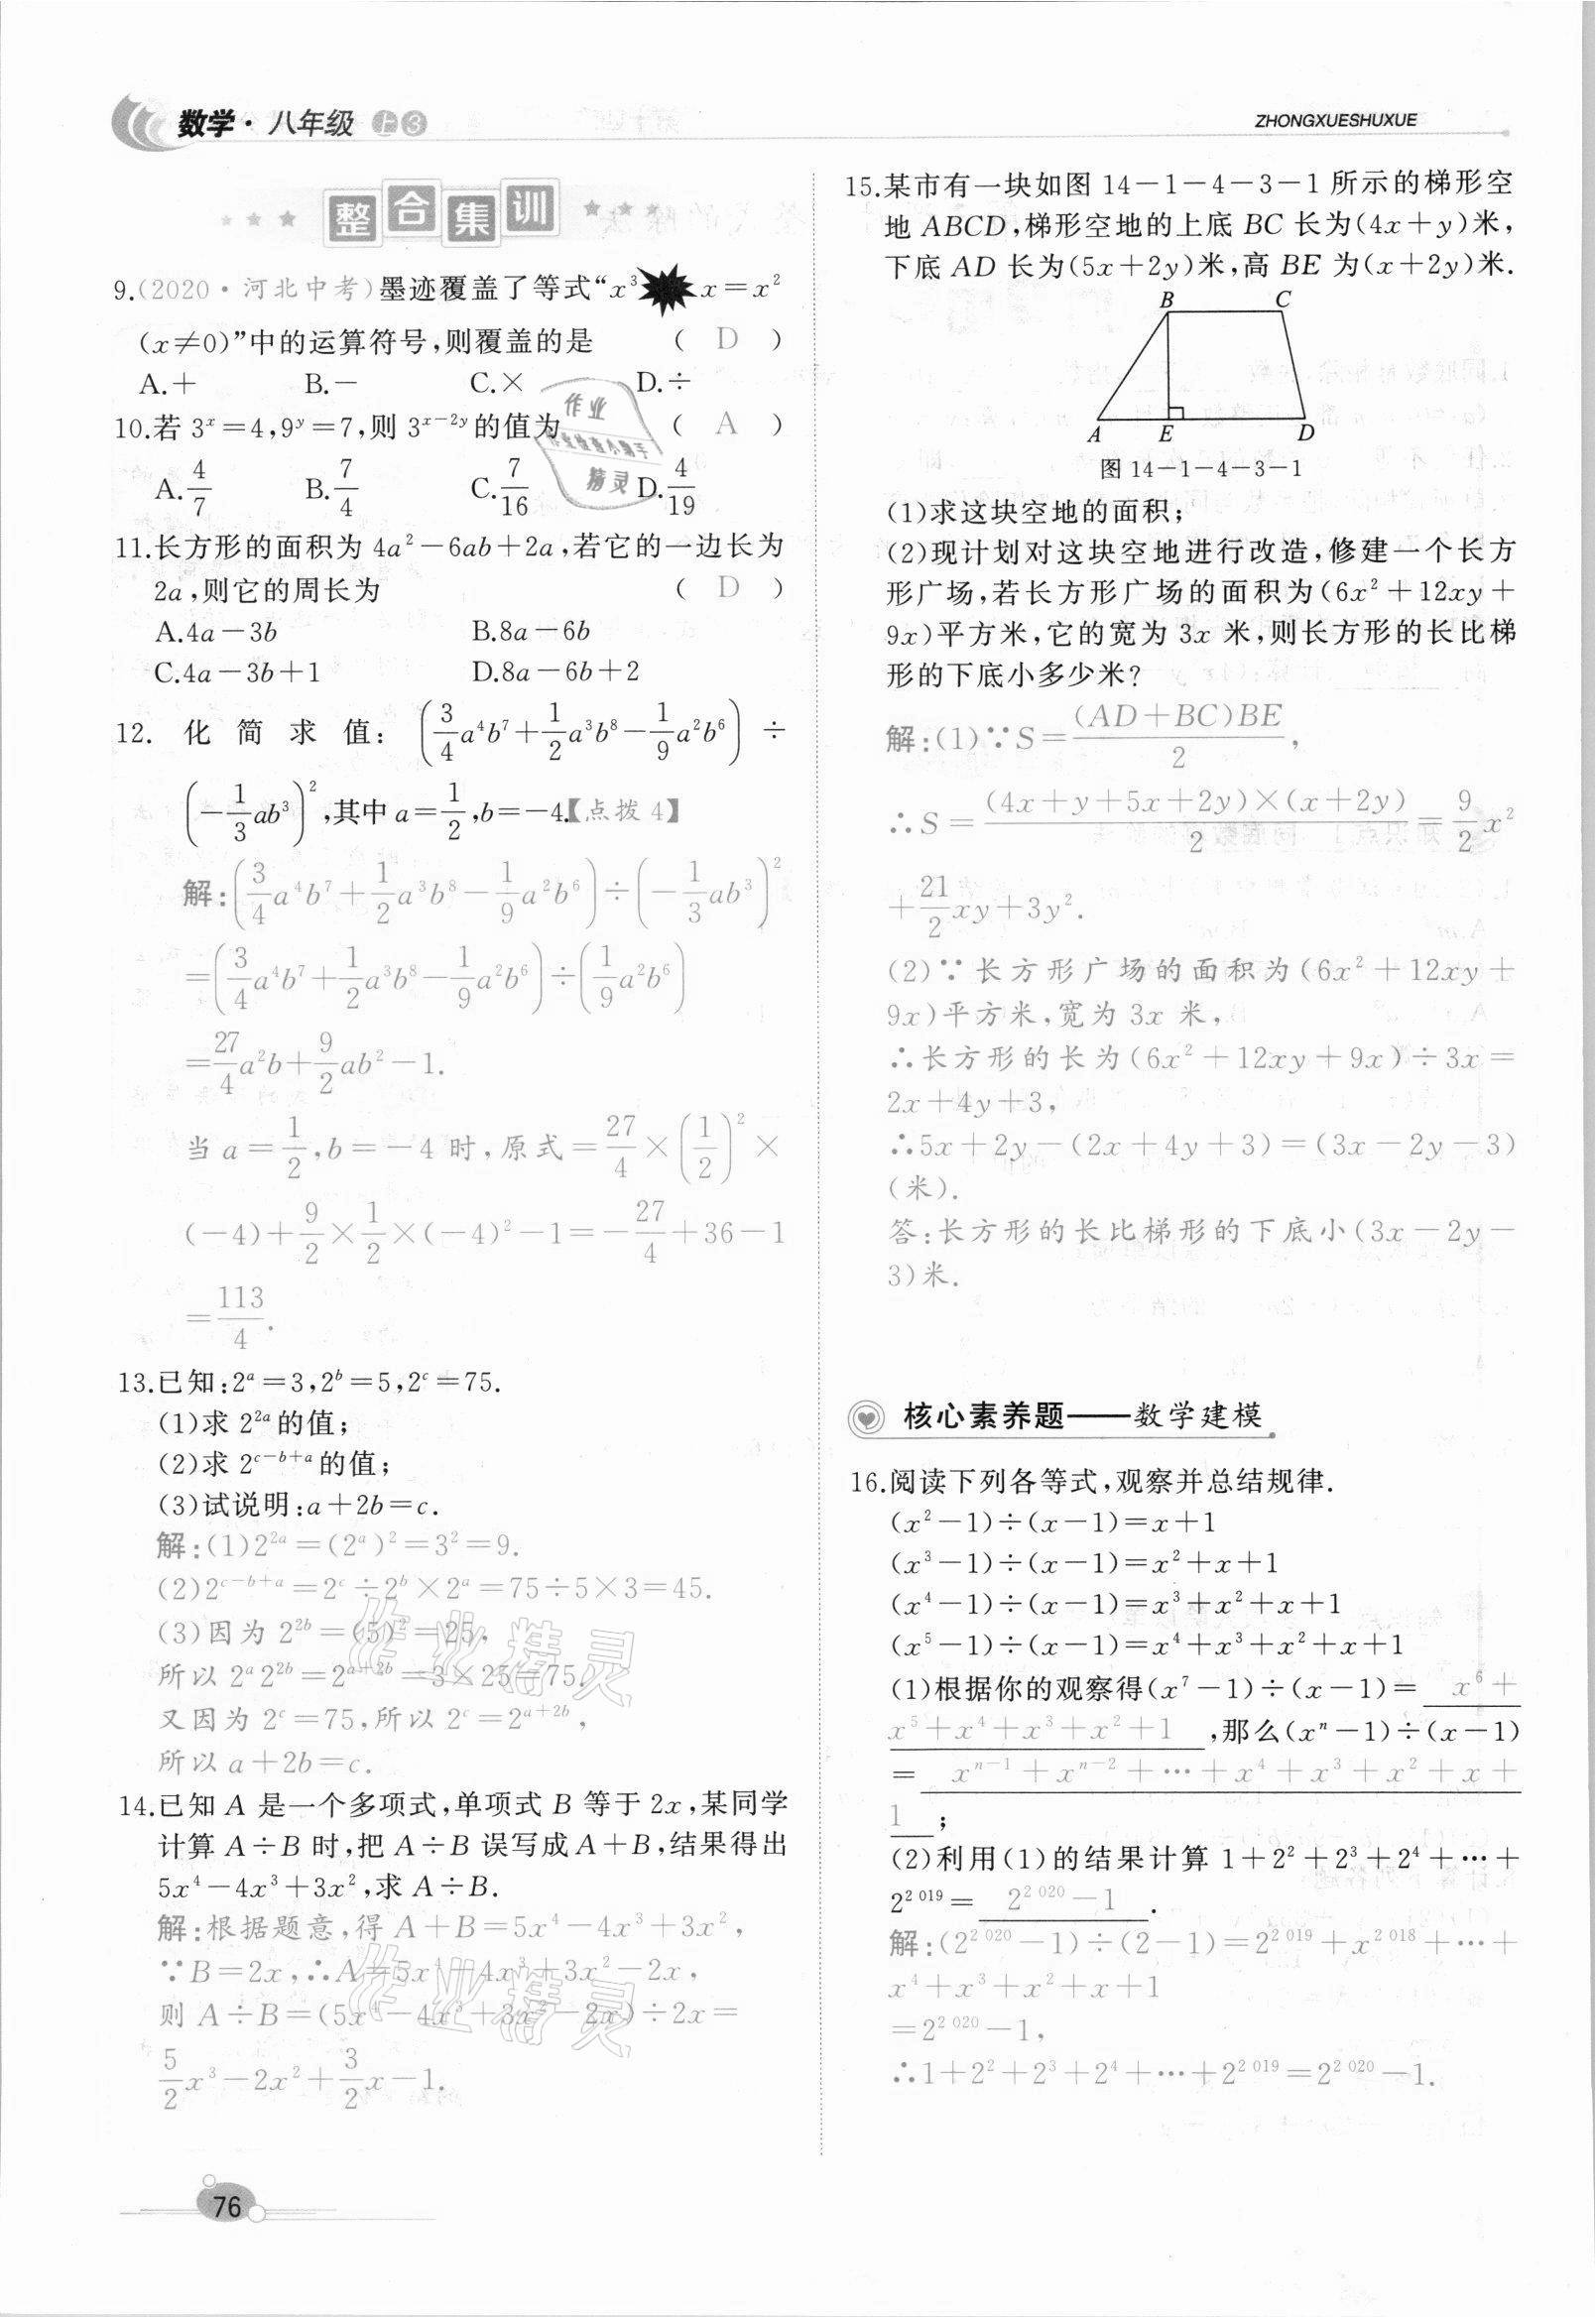 数学·八年级 上 3
ZHONGXUESHUXUE
整合集训
9.(2020·河北中考)墨迹覆盖了等式“x³ x=x²
(x≠0)”中的运算符号,则覆盖的是 ( D )
A.+ B.- C.× D.÷
10.若 3^x=4,9^y=7,则 3^{x-2y}的值为 ( A )
A.4/7 B.7/4 C.7/16 D.4/19
11.长方形的面积为 4a²-6ab+2a,若它的一边长为
2a,则它的周长为 ( D )
A.4a-3b B.8a-6b
C.4a-3b+1 D.8a-6b+2
12. 化简求值: (3/4 a⁴b⁷+1/2 a³b⁸-1/9 a²b⁶)÷
(-1/3 ab³)²,其中 a=1/2,b=-4.【点拨 4】
解:(3/4 a⁴b⁷+1/2 a³b⁸-1/9 a²b⁶)÷(-1/3 ab³)²
=(3/4 a⁴b⁷+1/2 a³b⁸-1/9 a²b⁶)÷(1/9 a²b⁶)
=27/4 a²b+9/2 ab²-1.
当 a=1/2,b=-4 时,原式=27/4×(1/2)²×
(-4)+9/2×1/2×(-4)²-1=-27/4+36-1
=113/4.
13.已知:2^a=3,2^b=5,2^c=75.
(1)求 2^{2a}的值;
(2)求 2^{c-b+a}的值;
(3)试说明:a+2b=c.
解:(1)2^{2a}=(2^a)²=3²=9.
(2)2^{c-b+a}=2^c÷2^b×2^a=75÷5×3=45.
(3)因为 2^{2b}=(5)²=25,
所以 2^a 2^{2b}=2^{a+2b}=3×25=75,
又因为 2^c=75,所以 2^c=2^{a+2b},
所以 a+2b=c.
14.已知 A 是一个多项式,单项式 B 等于 2x,某同学
计算 A÷B 时,把 A÷B 误写成 A+B,结果得出
5x⁴-4x³+3x²,求 A÷B.
解:根据题意,得 A+B=5x⁴-4x³+3x²,
∵B=2x,∴A=5x⁴-4x³+3x²-2x,
则 A÷B=(5x⁴-4x³+3x²-2x)÷2x=
5/2 x³-2x²+3/2 x-1.
76
15.某市有一块如图 14-1-4-3-1 所示的梯形空
地 ABCD,梯形空地的上底 BC 长为(4x+y)米,
下底 AD 长为(5x+2y)米,高 BE 为(x+2y)米.
B C
A E D
图 14-1-4-3-1
(1)求这块空地的面积;
(2)现计划对这块空地进行改造,修建一个长方
形广场,若长方形广场的面积为(6x²+12xy+
9x)平方米,它的宽为 3x 米,则长方形的长比梯
形的下底小多少米?
解:(1)∵S=(AD+BC)BE/2,
∴S=(4x+y+5x+2y)×(x+2y)/2=9/2 x²
+21/2 xy+3y².
(2)∵长方形广场的面积为(6x²+12xy+
9x)平方米,宽为 3x 米,
∴长方形的长为(6x²+12xy+9x)÷3x=
2x+4y+3,
∴5x+2y-(2x+4y+3)=(3x-2y-3)
(米).
答:长方形的长比梯形的下底小(3x-2y-
3)米.
核心素养题——数学建模
16.阅读下列各等式,观察并总结规律.
(x²-1)÷(x-1)=x+1
(x³-1)÷(x-1)=x²+x+1
(x⁴-1)÷(x-1)=x³+x²+x+1
(x⁵-1)÷(x-1)=x⁴+x³+x²+x+1
(1)根据你的观察得(x⁷-1)÷(x-1)= x⁶+
x⁵+x⁴+x³+x²+1 ,那么(xⁿ-1)÷(x-1)
= x^{n-1}+x^{n-2}+…+x⁴+x³+x²+x+
1 ;
(2)利用(1)的结果计算 1+2²+2³+2⁴+…+
2^{2 019}= 2^{2 020}-1 .
解:(2^{2 020}-1)÷(2-1)=2^{2 019}+x^{2 018}+…+
x⁴+x³+x²+x+1
=2^{2 020}-1,
∴1+2²+2³+2⁴+…+2^{2 019}=2^{2 020}-1.
作业
作业检查小助手
精灵
作业精灵
作业精灵